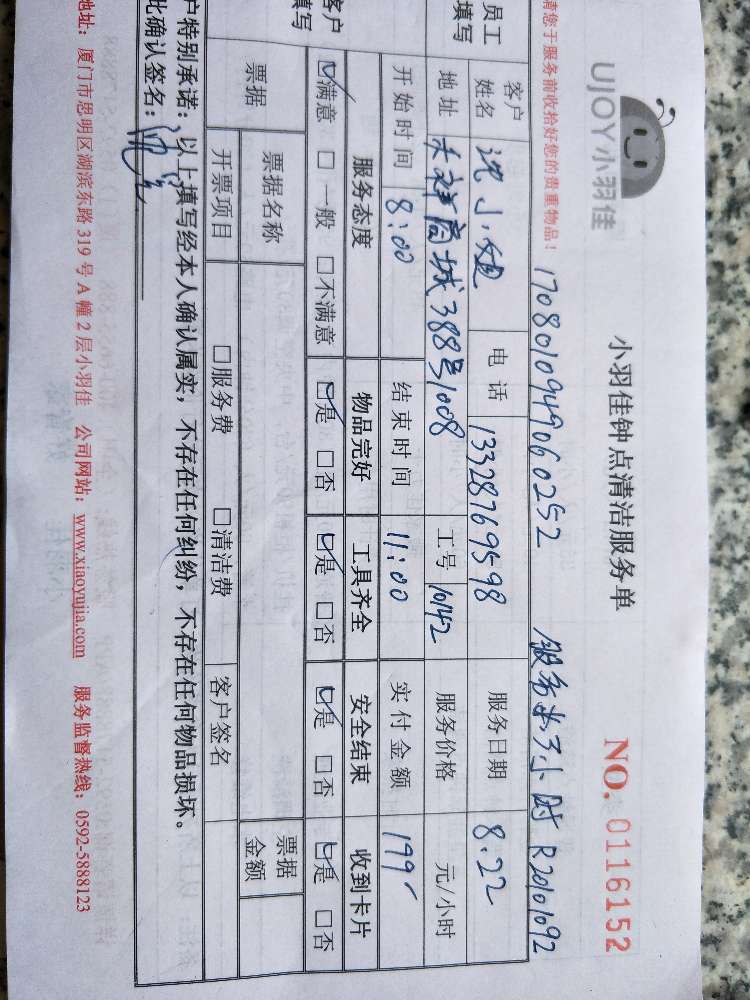 UJOY小羽佳
小羽佳钟点清洁服务单
NO. 0116152
您于服务前收拾好您的贵重物品！
1708010949060252 服务 3小时 R20101092
员工填写 客户姓名 沈小 电话 13328769598 服务日期 8.22
地址 商城388号1008 工号 10142 服务价格 元/小时
开始时间 8:00 结束时间 11:00 实付金额 199
客户填写 服务态度 物品完好 工具齐全 安全结束 收到卡片
☑满意 □一般 □不满意 ☑是 □否 ☑是 □否 ☑是 □否 ☑是 □否
票据 票据名称 票据金额
开票项目 □服务费 □清洁费 客户签名
户特别承诺：以上填写经本人确认属实，不存在任何纠纷，不存在任何物品损坏。
此确认签名：
地址：厦门市思明区湖滨东路 319 号 A 幢 2 层小羽佳 公司网站：www.xiaoyujia.com 服务监督热线：0592-5888123